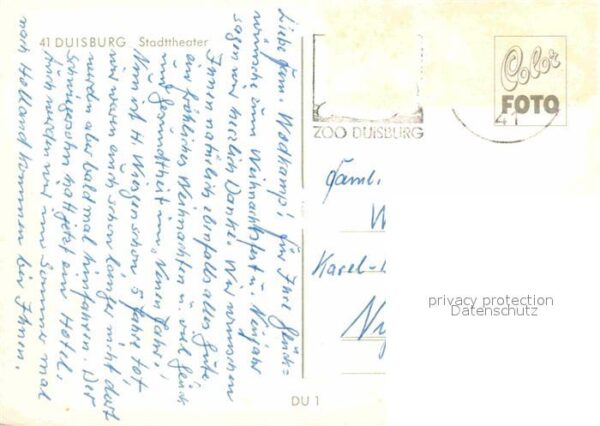 41 DUISBURG Stadttheater
Liebe Fam. Wedkamp! Für Ihre Glück=
wünsche zum Weihnachtsfest u. Neujahr
sagen wir herzlich Danke. Wir wünschen
Ihnen natürlich ebenfalls alles Gute,
ein fröhliches Weihnachten u. viel Glück
und Gesundheit im "Neuen Jahre".
Nun ist H. Wiegen schon 5 Jahre tot,
wir waren auch schon länger nicht dort
werden aber bald mal hinfahren. Der
Schwiegersohn hat jetzt ein Hotel.
Auch werden wir im Sommer mal
nach Holland kommen bei Ihnen.
ZOO DUISBURG
41
Color
FOTO
Faml.
W
Karel-
Ny
privacy protection
Datenschutz
DU 1